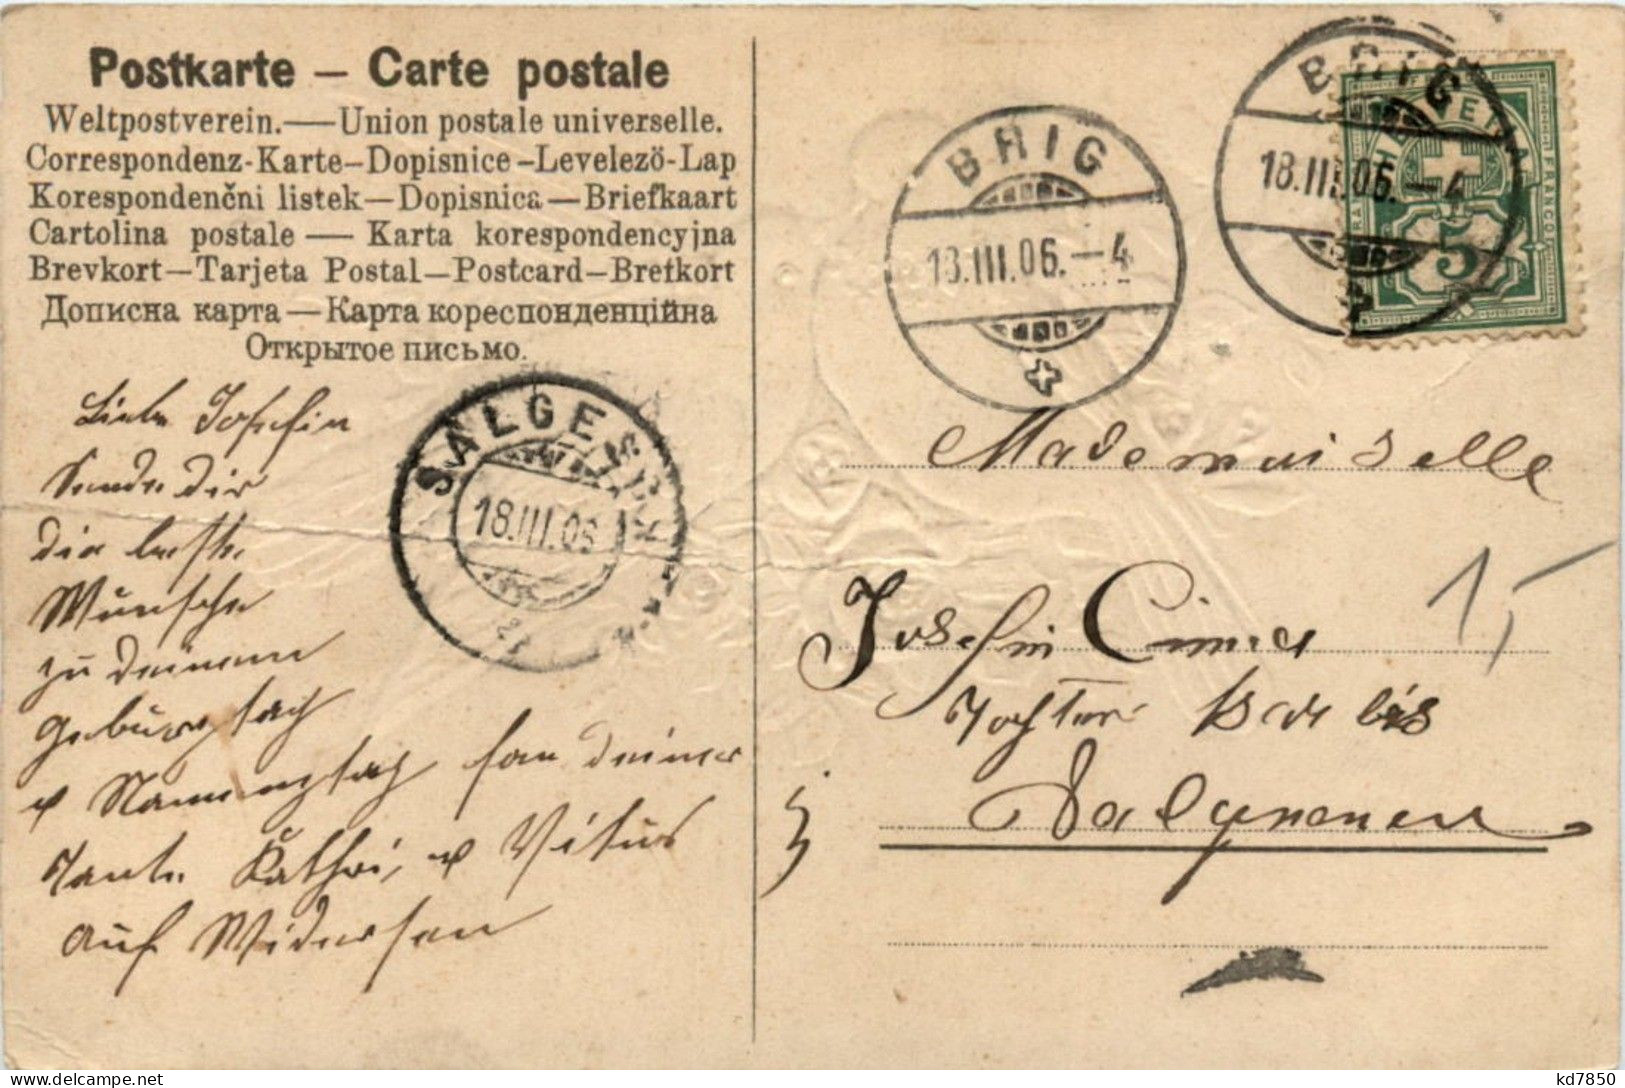 Postkarte – Carte postale
Weltpostverein.—Union postale universelle.
Correspondenz-Karte–Dopisnice–Levelező-Lap
Korespondenčni listek—Dopisnica—Briefkaart
Cartolina postale — Karta korespondencyjna
Brevkort—Tarjeta Postal—Postcard—Brefkort
Дописна карта—Карта кореспонденційна
Открытое письмо.
BRIG
18.III.06.–4
BRIG
18.III.06.–4
HELVETIA
FRANCO
5
SALGE
18.III.06
Liebe Josefin
Sende dir
die beste
Wünsche
zu deinem
Geburtstag
u Namenstag fon deiner
Tante Kathri, u Vitus
auf Widersen
Mademoiselle
Josefin
Tochter
15
kd7850